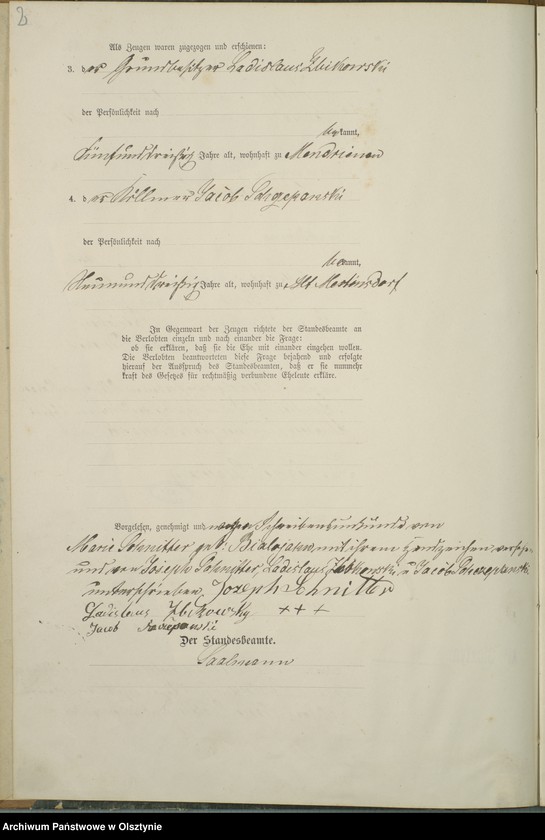 2
Als Zeugen waren zugezogen und erschienen:
3. der Grundbesitzer Ladislaus Zbikowski
der Persönlichkeit nach
bekannt,
fünfunddreißig Jahre alt, wohnhaft zu Mendrienen
4. der Köllmer Jacob Sczepanski
der Persönlichkeit nach
bekannt,
neununddreißig Jahre alt, wohnhaft zu Alt Mertinsdorf
In Gegenwart der Zeugen richtete der Standesbeamte an
die Verlobten einzeln und nach einander die Frage:
ob sie erklären, daß sie die Ehe mit einander eingehen wollen.
Die Verlobten beantworteten diese Frage bejahend und erfolgte
hierauf der Ausspruch des Standesbeamten, daß er sie nunmehr
kraft des Gesetzes für rechtmäßig verbundene Eheleute erkläre.
Vorgelesen, genehmigt und wegen Schreibensunkunde von
Marie Schnitter geb. mit ihrem Handzeichen versehen
und von Joseph Schnitter, Ladislaus Zbikowski u Jacob Sczepanski
unterschrieben. Jozeph Schnitter
Ladislaus Zbikowsky + + +
Jacob
Der Standesbeamte.
Saalmann
Archiwum Państwowe w Olsztynie